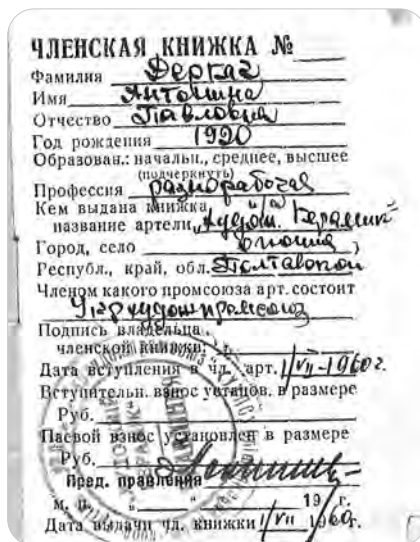 ЧЛЕНСКАЯ КНИЖКА №
Фамилия Деркач
Имя Антонина
Отчество Павловна
Год рождения 1920
Образован.: начальн., среднее, высшее
(подчеркнуть)
Профессия разнорабочая
Кем выдана книжка,
название артели, „Худож. Керамик"
Город, село Опошня
Республ., край, обл. Полтавской
Членом какого промсоюза арт. состоит
Укрхудожпромсоюз
Подпись владельца
членской книжки:
Дата вступления в чл. арт. 1/VII-1960г.
Вступительн. взнос установ. в размере
Руб.
Паевой взнос установлен в размере
Руб.
Пред. правления
м. п. „ " 19 г.
Дата выдачи чл. книжки 1/VII 1960г.